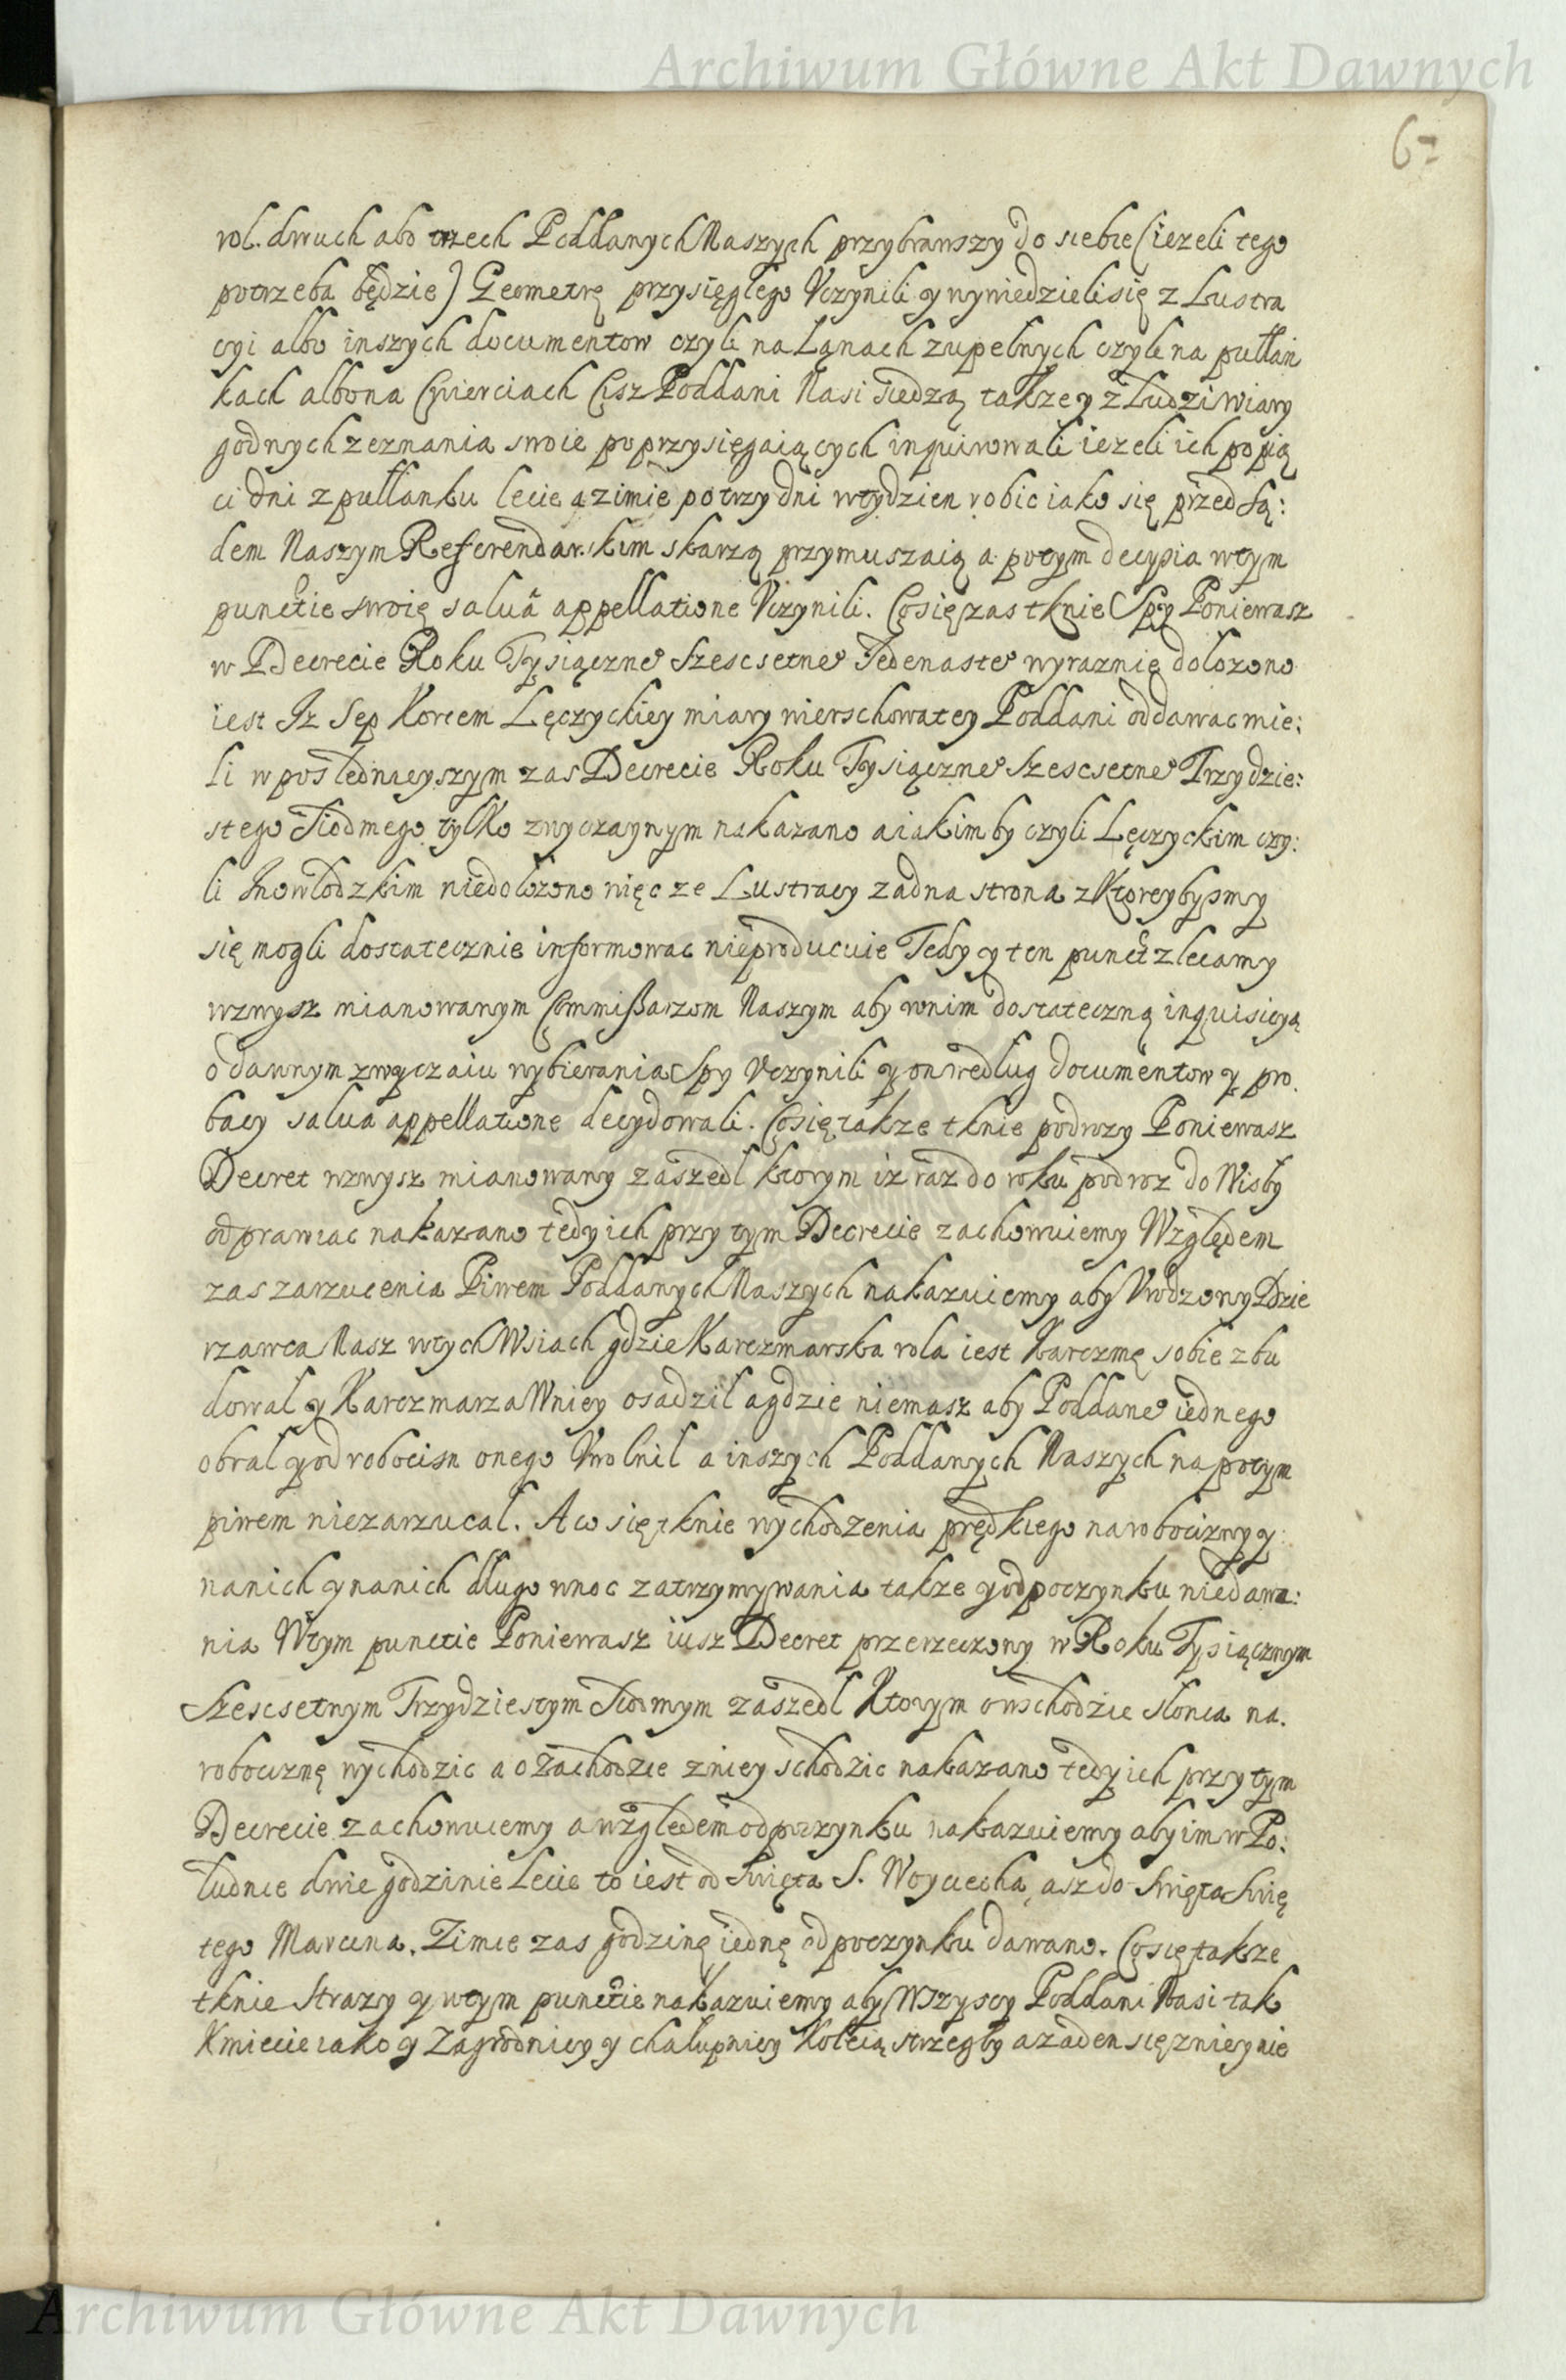 Archiwum Główne Akt Dawnych
67
rol. dwuch abo trzech Poddanych Naszych przybrawszy do siebie (iezeli tego
potrzeba będzie) Geometrę przysięglego Vczynili y wywiedzieli się z Lustra
cyi albo inszych documentow czyli na Łąnach zupelnych czyli na pułłan
kach albo na Cwierciach Cisz Poddani Nasi siedzą takze y z Ludzi wiary
godnych zeznania swoie poprzysięgaiących inquirowali iezeli ich po pią
ci dni z pułłanku lecie a zimie po trzy dni w tydzien robic iako się przed Są:
dem Naszym Referendarskim skarzą przymuszaią a potym decyzia w tym
punctie swoię salua appellatione Vczynili. Co się zas tknie Spy Poniewasz
w Decrecie Roku Tysiączne° Szescsetne° Jedenaste° wyraznie dolozono
iest Iz Sep Korcem Lęczyckiey miary wierschowatey Poddani oddawac mie:
li w posledniejszym zas Decrecie Roku Tysiączne° Szescsetne° Trzydzie:
stego Siodmego tylko zwyczaynym nakazano a iakimby czyli Lęczyckim czy:
li Inowlodzkim niedolozono więc ze Lustracy zadna strona z Ktoreybysmy
się mogli dostatecznie informowac nieproducuie Tedy y ten punct zlecamy
wzwysz mianowanym Commißarzom Naszym aby w nim dostateczną inquisicyą
o dawnym zwyczaiu wybierania Spy Vczynili y on wedlug documentow y pro.
bacy salua appellatione decydowali. Co się takze tknie podrozy Poniewasz
Decret wzwysz mianowany zaszedl ktorym iz raz do roku podroz do Wisly
odprawiac nakazano tedy ich przy tym Decrecie zachowuiemy Względem
zas zarzucenia Piwem Poddanych Naszych nakazuiemy aby Vrodzony Dzie
rzawca Nasz w tych Wsiach gdzie Karczmarska rola iest Karczmę sobie zbu
dowal y Karczmarza Wniey osadzil a gdzie niemasz aby Poddane° iednego
obral y od robocisn onego Vwolnil a inszych Poddanych Naszych na potym
piwem niezarzucal. A co się tknie wychodzenia prędkiego na robocizny y
na nich y na nich dlugo w noc zatrzymywania takze y odpoczynku niedawa:
nia W tym punctie Poniewasz iusz Decret przerzeczony w Roku Tysiącznym
Szescsetnym Trzydziestym Siodmym zaszedl Ktorym o wschodzie slonca na.
robociznę wychodzic a o zachodzie z niey schodzic nakazano tedy ich przy tym
Decrecie zachowuiemy a względem odpoczynku nakazuiemy aby im w Po:
ludnie dwie godzinie Lecie to iest od Swięta S. Woyciecha asz do Swięta Swię
tego Marcina. Zimie zas godzinę iednę odpoczynku dawano. Co się takze
tknie Strazy y w tym punctie nakazuiemy aby Wszyscy Poddani Nasi tak
Kmiecie iako y Zagrodnicy y chalupnicy Koleią strzegli y a zaden się z niey nie
Archiwum Główne Akt Dawnych